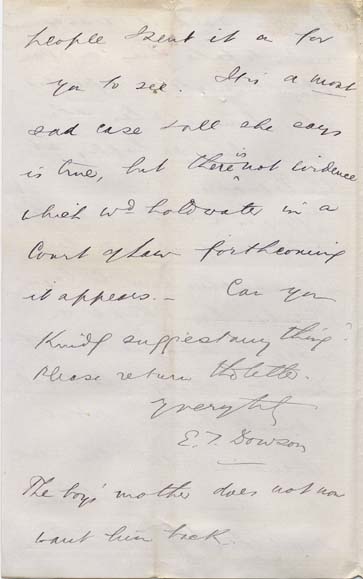 people I sent it on for
you to see. It is a most
sad case & all she says
is true, but there is not evidence
which wd hold water in a
Court of Law forthcoming
it appears. — Can you
Kindly suggest any thing?
Please return the letter.
Yrs very truly
E. T. Dowson
The boy's mother does not now
want him back.